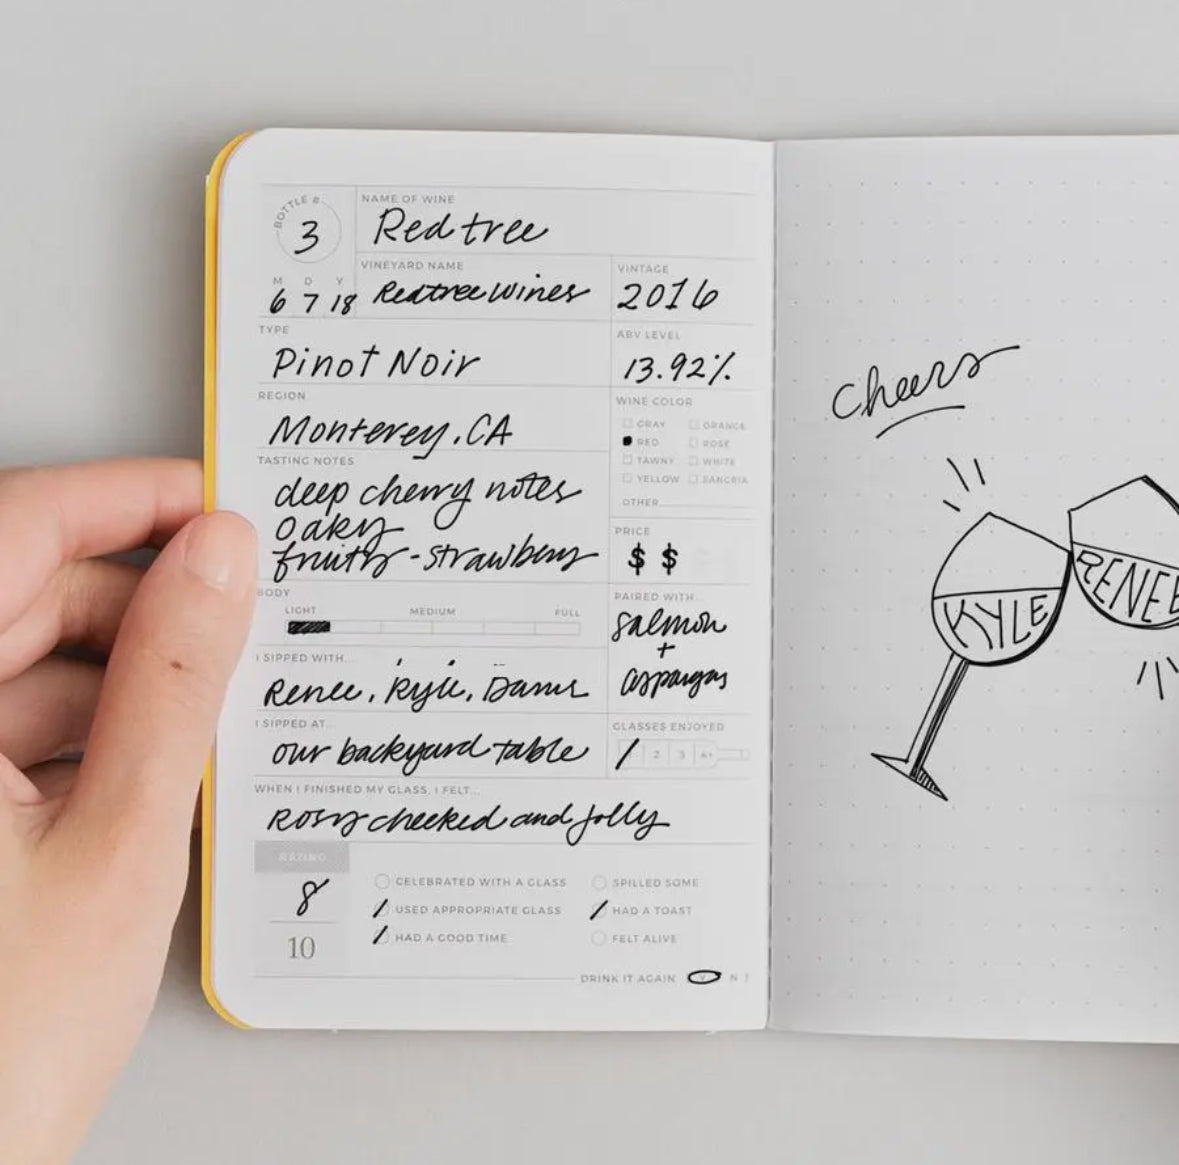 BOTTLE #
3
NAME OF WINE
Red tree
M D Y
6 7 18
VINEYARD NAME
Redtree Wines
VINTAGE
2016
TYPE
Pinot Noir
ABV LEVEL
13.92%
REGION
Monterey, CA
WINE COLOR
GRAY ORANGE
RED ROSÉ
TAWNY WHITE
YELLOW SANGRIA
OTHER
TASTING NOTES
deep cherry notes
oaky
fruity - strawberry
PRICE
$ $
BODY
LIGHT MEDIUM FULL
PAIRED WITH...
salmon
+
asparagus
I SIPPED WITH...
Renee, Kyle,
I SIPPED AT...
our backyard table
GLASSES ENJOYED
2 3 4+
WHEN I FINISHED MY GLASS, I FELT...
Rosy cheeked and jolly
RATING
8
10
CELEBRATED WITH A GLASS SPILLED SOME
USED APPROPRIATE GLASS HAD A TOAST
HAD A GOOD TIME FELT ALIVE
DRINK IT AGAIN Y N
Cheers
KYLE
RENEE